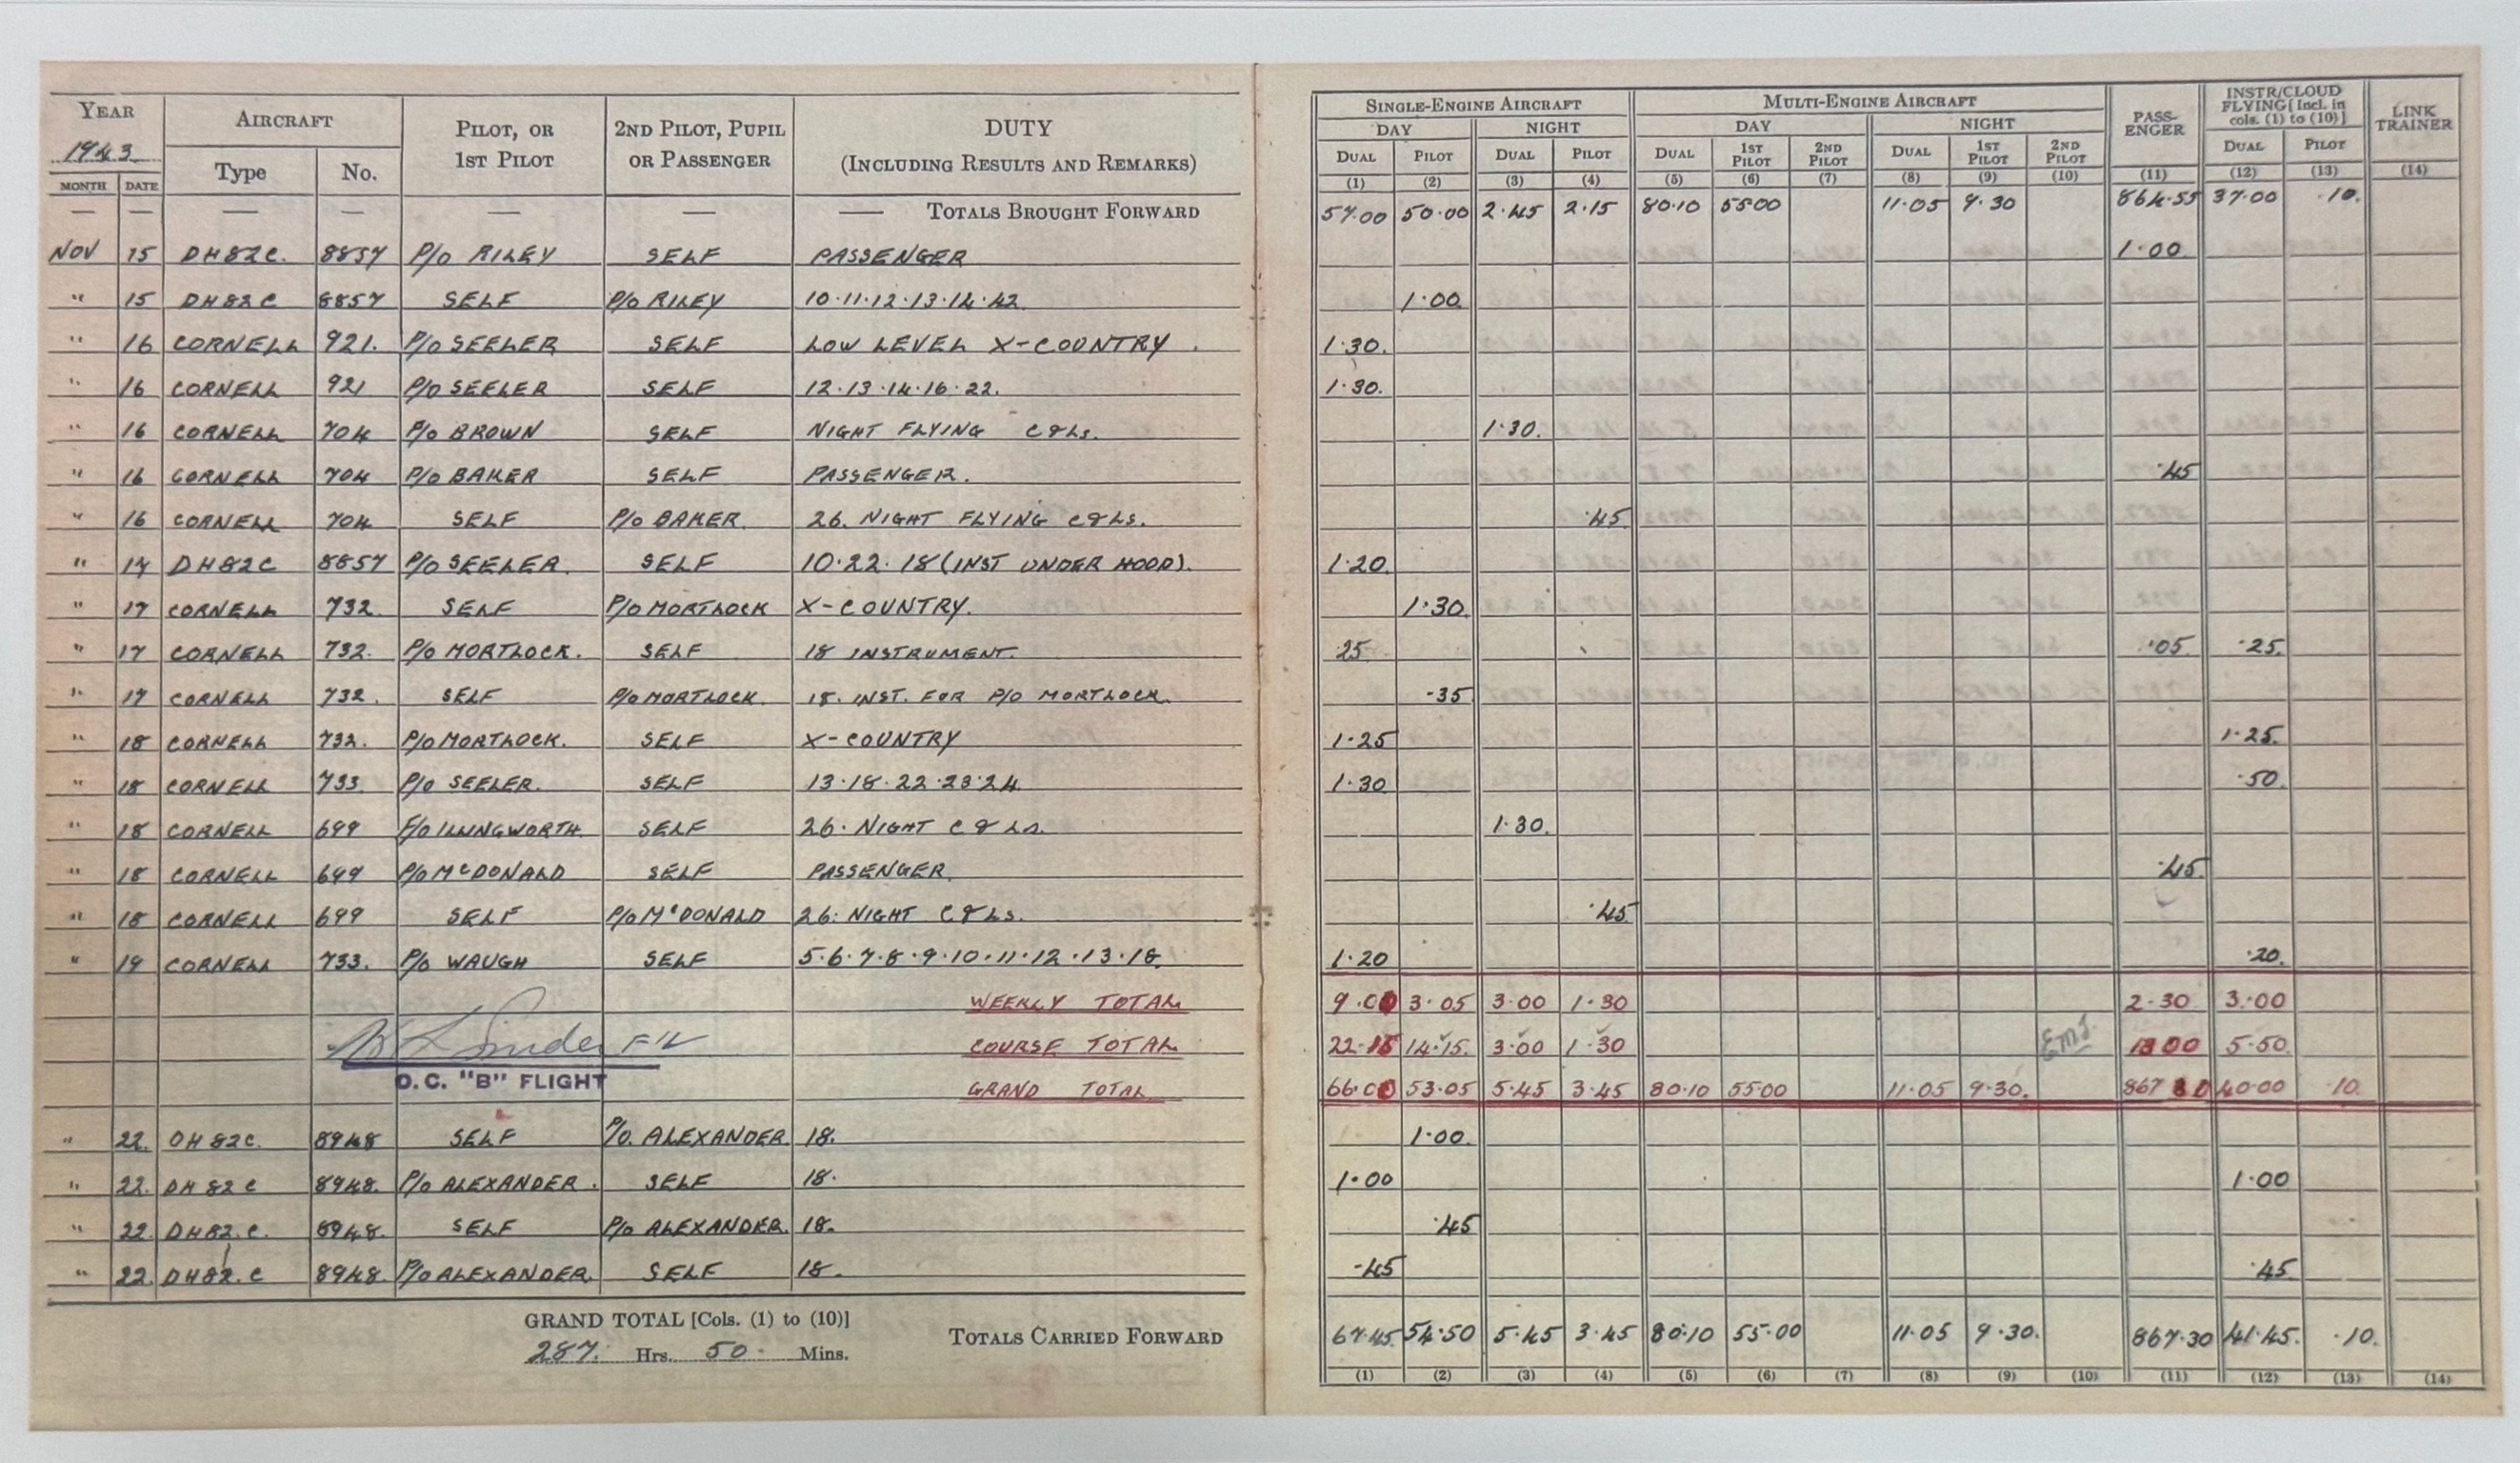 YEAR AIRCRAFT PILOT, OR 1ST PILOT 2ND PILOT, PUPIL OR PASSENGER DUTY (INCLUDING RESULTS AND REMARKS) SINGLE-ENGINE AIRCRAFT MULTI-ENGINE AIRCRAFT PASS-ENGER INSTR/CLOUD FLYING [Incl. in cols. (1) to (10)] LINK TRAINER
1943 DAY NIGHT DAY NIGHT
MONTH DATE Type No. DUAL PILOT DUAL PILOT DUAL 1ST PILOT 2ND PILOT DUAL 1ST PILOT 2ND PILOT DUAL PILOT
(1) (2) (3) (4) (5) (6) (7) (8) (9) (10) (11) (12) (13) (14)
— — — — — — — TOTALS BROUGHT FORWARD 57.00 50.00 2.45 2.15 80.10 55.00 11.05 9.30 864.55 37.00 .10.
NOV 15 DH82C. 8857 P/O RILEY SELF PASSENGER 1.00
" 15 DH82C 8857 SELF P/O RILEY 10.11.12.13.14.42 1.00
" 16 CORNELL 921. P/O SEELER SELF LOW LEVEL X-COUNTRY. 1.30.
" 16 CORNELL 921 P/O SEELER SELF 12.13.14.16.22. 1.30.
" 16 CORNELL 704 P/O BROWN SELF NIGHT FLYING C&Ls. 1.30.
" 16 CORNELL 704 P/O BAKER SELF PASSENGER. .45
" 16 CORNELL 704 SELF P/O BAKER. 26. NIGHT FLYING C&Ls. .45
" 17 DH82C 8857 P/O SEELER. SELF 10.22.18 (INST UNDER HOOD). 1.20
" 17 CORNELL 732 SELF P/O MORTLOCK X-COUNTRY. 1.30
" 17 CORNELL 732. P/O MORTLOCK. SELF 18 INSTRUMENT. 25 .05 .25.
" 17 CORNELL 732. SELF P/O MORTLOCK. 18. INST. FOR P/O MORTLOCK. .35
" 18 CORNELL 732. P/O MORTLOCK. SELF X-COUNTRY 1.25 1.25.
" 18 CORNELL 733. P/O SEELER. SELF 13.18.22.23.24 1.30 .50.
" 18 CORNELL 699 F/O ILLINGWORTH. SELF 26. NIGHT C & Ls. 1.30.
" 18 CORNELL 699 P/O McDONALD SELF PASSENGER. .45
" 18 CORNELL 699 SELF P/O McDONALD 26. NIGHT C & Ls. .45
" 19 CORNELL 733. P/O WAUGH SELF 5.6.7.8.9.10.11.12.13.18. 1.20 .20.
WEEKLY TOTAL 9.00 3.05 3.00 1.30 2.30 3.00
F/L COURSE TOTAL 22.15 14.15. 3.00 1.30 13 00 5.50.
O.C. "B" FLIGHT
GRAND TOTAL 66.00 53.05 5.45 3.45 80.10 55.00 11.05 9.30. 867 30 40.00 .10.
" 22. DH82C. 8948 SELF P/O. ALEXANDER 18. 1.00.
" 22. DH82C 8948. P/O ALEXANDER. SELF 18. 1.00 1.00
" 22. DH82.C. 8948. SELF P/O ALEXANDER. 18. .45
" 22. DH82.C 8948. P/O ALEXANDER. SELF 18. .45 .45
GRAND TOTAL [Cols. (1) to (10)]
287. Hrs. 50. Mins. TOTALS CARRIED FORWARD 67.45 54.50 5.45 3.45 80.10 55.00 11.05 9.30. 867.30 41.45. .10.
(1) (2) (3) (4) (5) (6) (7) (8) (9) (10) (11) (12) (13) (14)